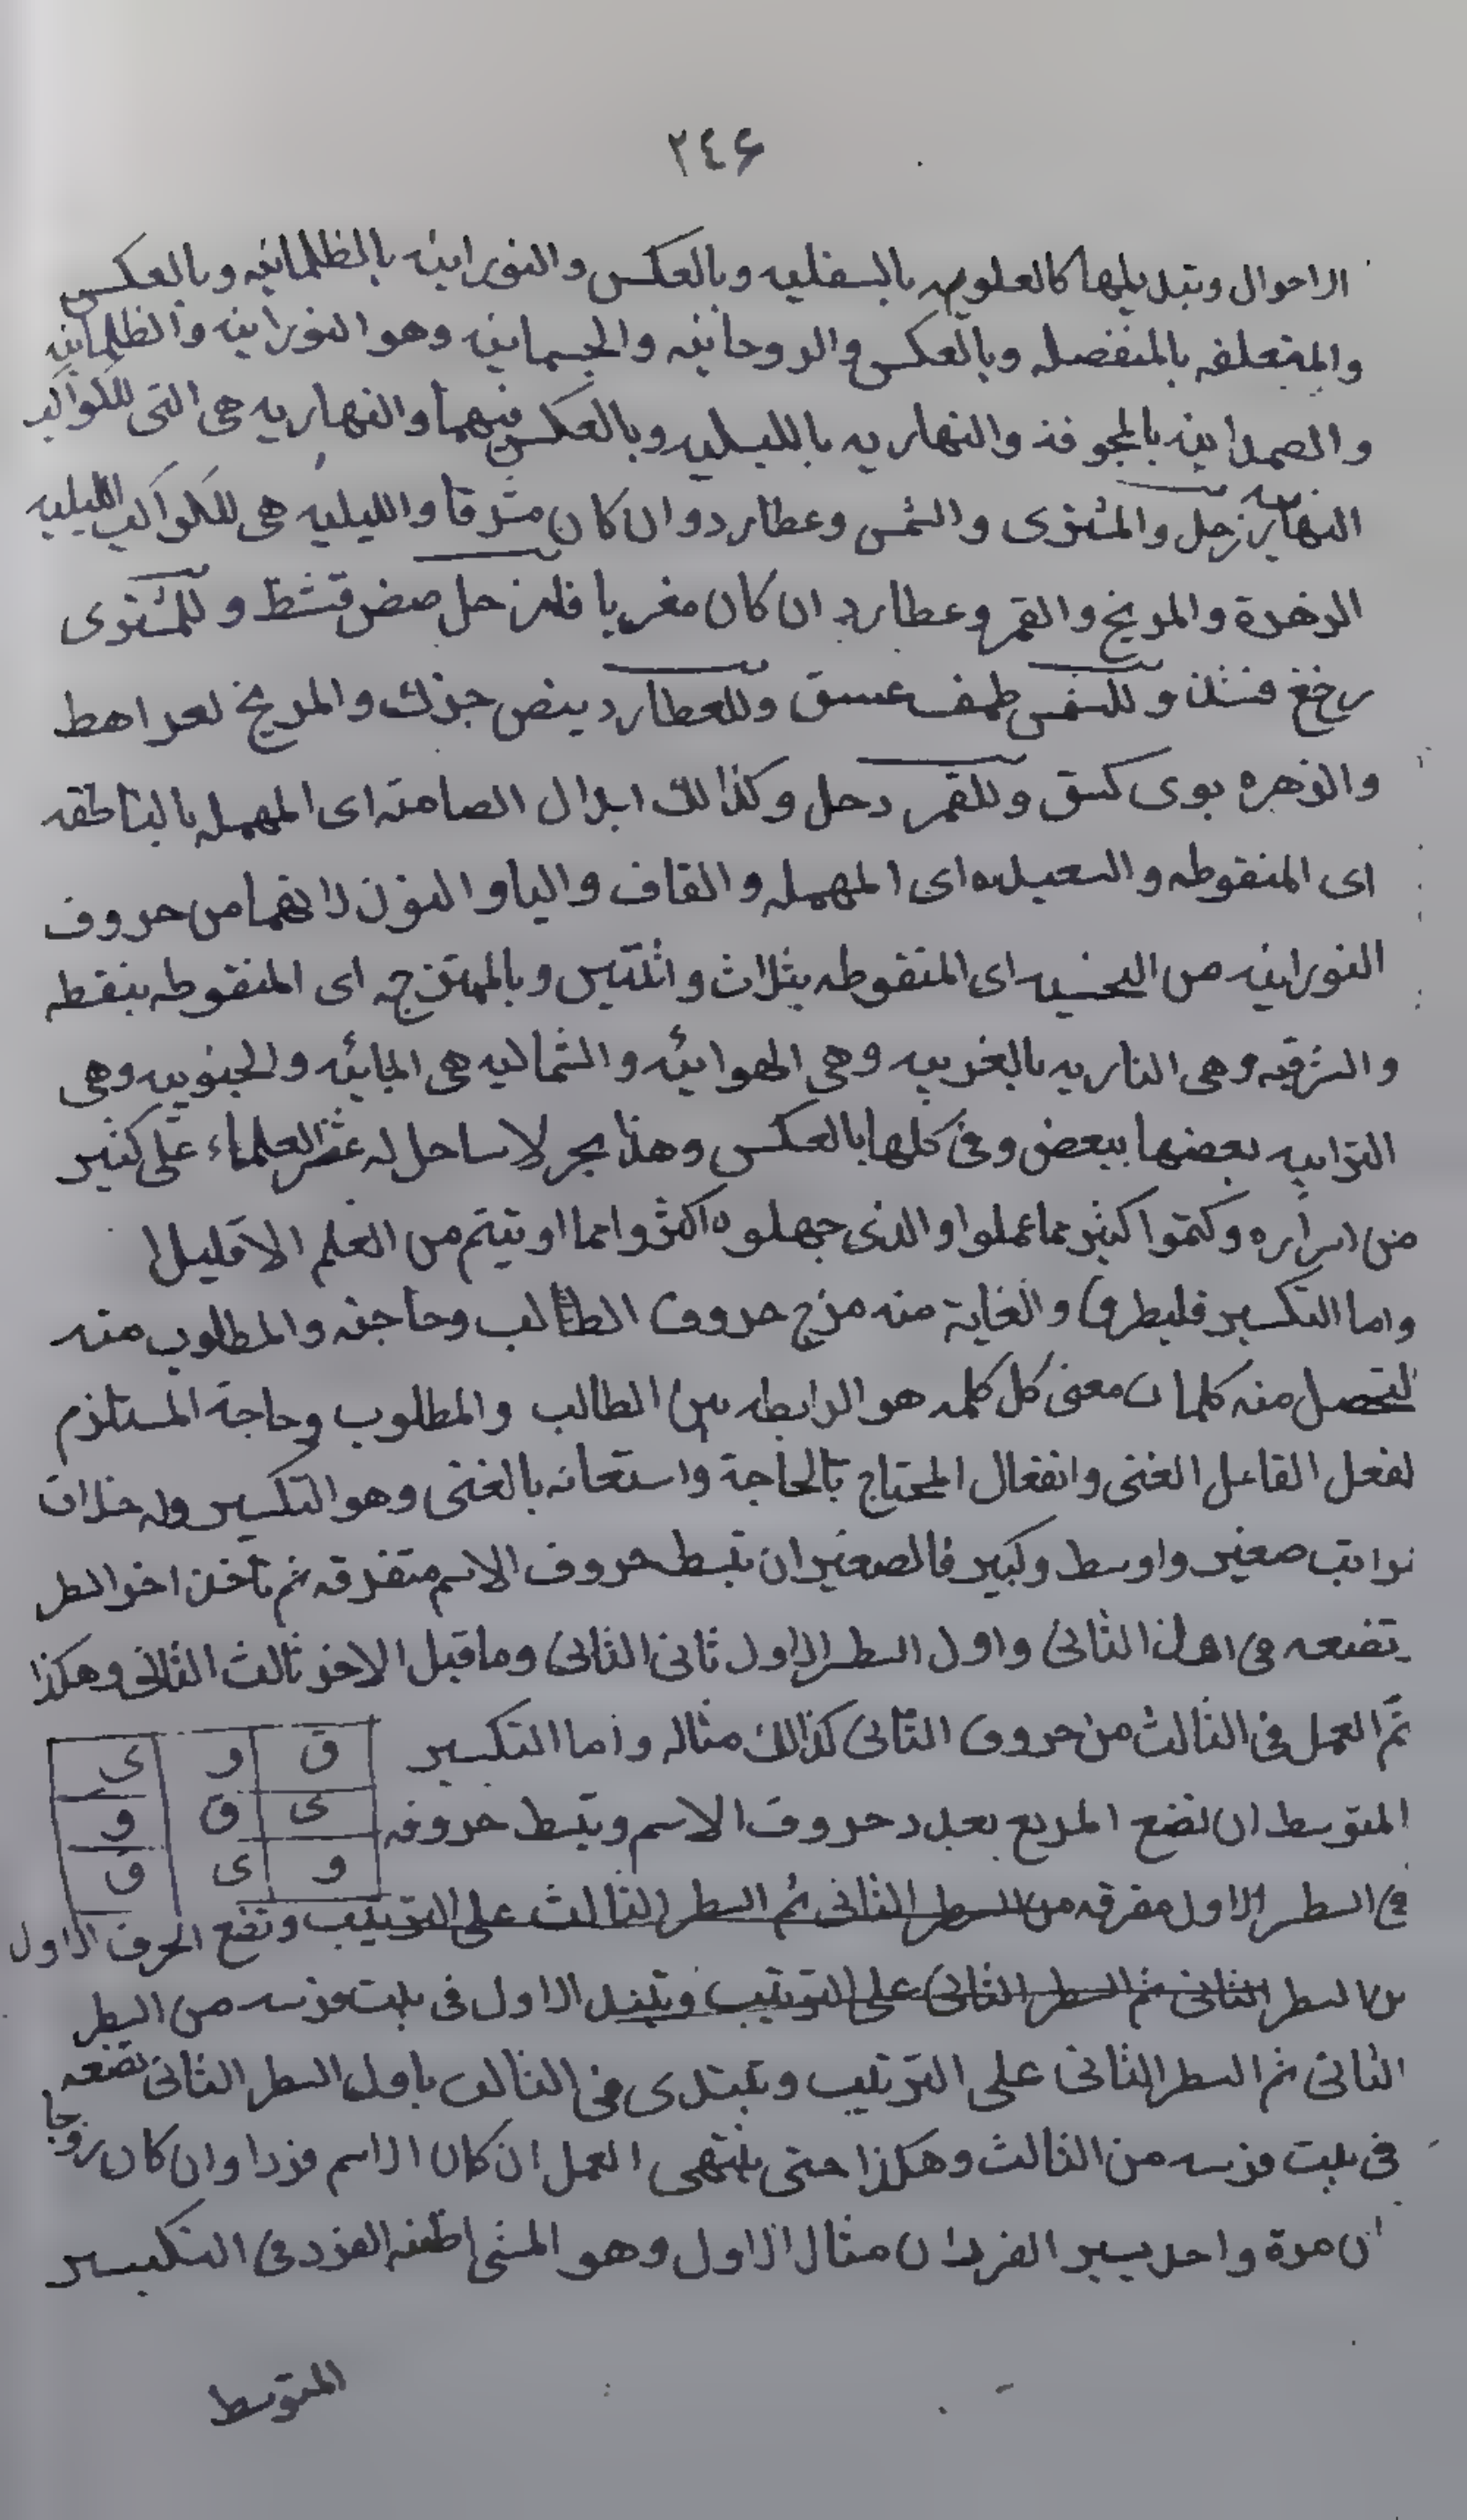 ٢٤٦
الاحوال وتبديلها كالعلويه بالسفليه وبالعكس والنورانيه بالظلمانيه وبالعكس
والمتعلقه بالمنفصله وبالعكس والروحانيه والجسمانيه وهو النورانيه والظلمانيه
والصمدانيه بالمجوفه والنهاريه بالليليه وبالعكس فيهما والنهاريه هى التى للكواكب
النهاريه زحل والمشترى والشمس وعطارد وان كان مشرقا والليليه هى للكواكب الليليه
الزهرة والمريخ والقمر وعطارد ان كان مغربا فلزحل صضض قشظ وللمشترى
وللشمس طمف عسق وللعطارد ينص جزك والمريخ لعد اهط
والزهره بوى كسق وللقمر دحل وكذالك ابدال الصامته اى المهمله بالناطقه
اى المنقوطه والسعيده اى المهمله والقاف واليا والنون لانهما من حروف
النورانيه من النحسيه اى المنقوطه بثلاث واثنتين وبالممتزجه اى المنقوطه بنقطه
والشرقيه وهى الناريه بالغربيه وهى الهوائيه والشماليه هى المائيه والجنوبيه وهى
الترابيه بعضها ببعض وفى كلها بالعكس وهذا بحر لا ساحل له عثر العلماء على كثير
من اسراره وكتموا كثير مما عملوا والذى جهلوه اكثر واما اوتيتم من العلم الا قليلا
واما التكسير فلبطرق والغاية منه مزج حروف الطالب وحاجته والمطلوب منه
لتحصل منه كلمات معنى كل كلمه هو الرابطه بين الطالب والمطلوب وحاجة المستلزم
لفعل الفاعل الغنى وانفعال المحتاج بالحاجة واستعانه بالغنى وهو التكسير وله ثلاث
مراتب صغير واوسط وكبير فالصغير ان تبسط حروف الاسم متفرقه ثم تاخذ اخر السطر
تضعه فى اول الثانى واول السطر الاول ثانى الثانى وما قبل الاخر ثالث الثانى وهكذا
ثم العمل فى الثالث من حروف الثانى كذالك مثاله واما التكسير
ق و ى
ى ق و
و ى ق
المتوسط ان تضع المربع بعدد حروف الاسم وتبسط حروفه
فى السطر الاول مفرقه من السطر الثانى ثم السطر الثالث على الترتيب وتضع الحرف الاول
من السطر الثانى ثم السطر الثانى على الترتيب وتنزل الاول فى بيت فرسه من السطر
الثانى ثم السطر الثانى على الترتيب وتبتدى فى الثالث باول السطر الثانى تضعه
فى بيت فرسه من الثالث وهكذا حتى ينتهى العمل ان كان الاسم فردا وان كان زوجا
مرة واحد يسير الفردان مثال الاول وهو المشى الفرد فى التكسير
المتوسط